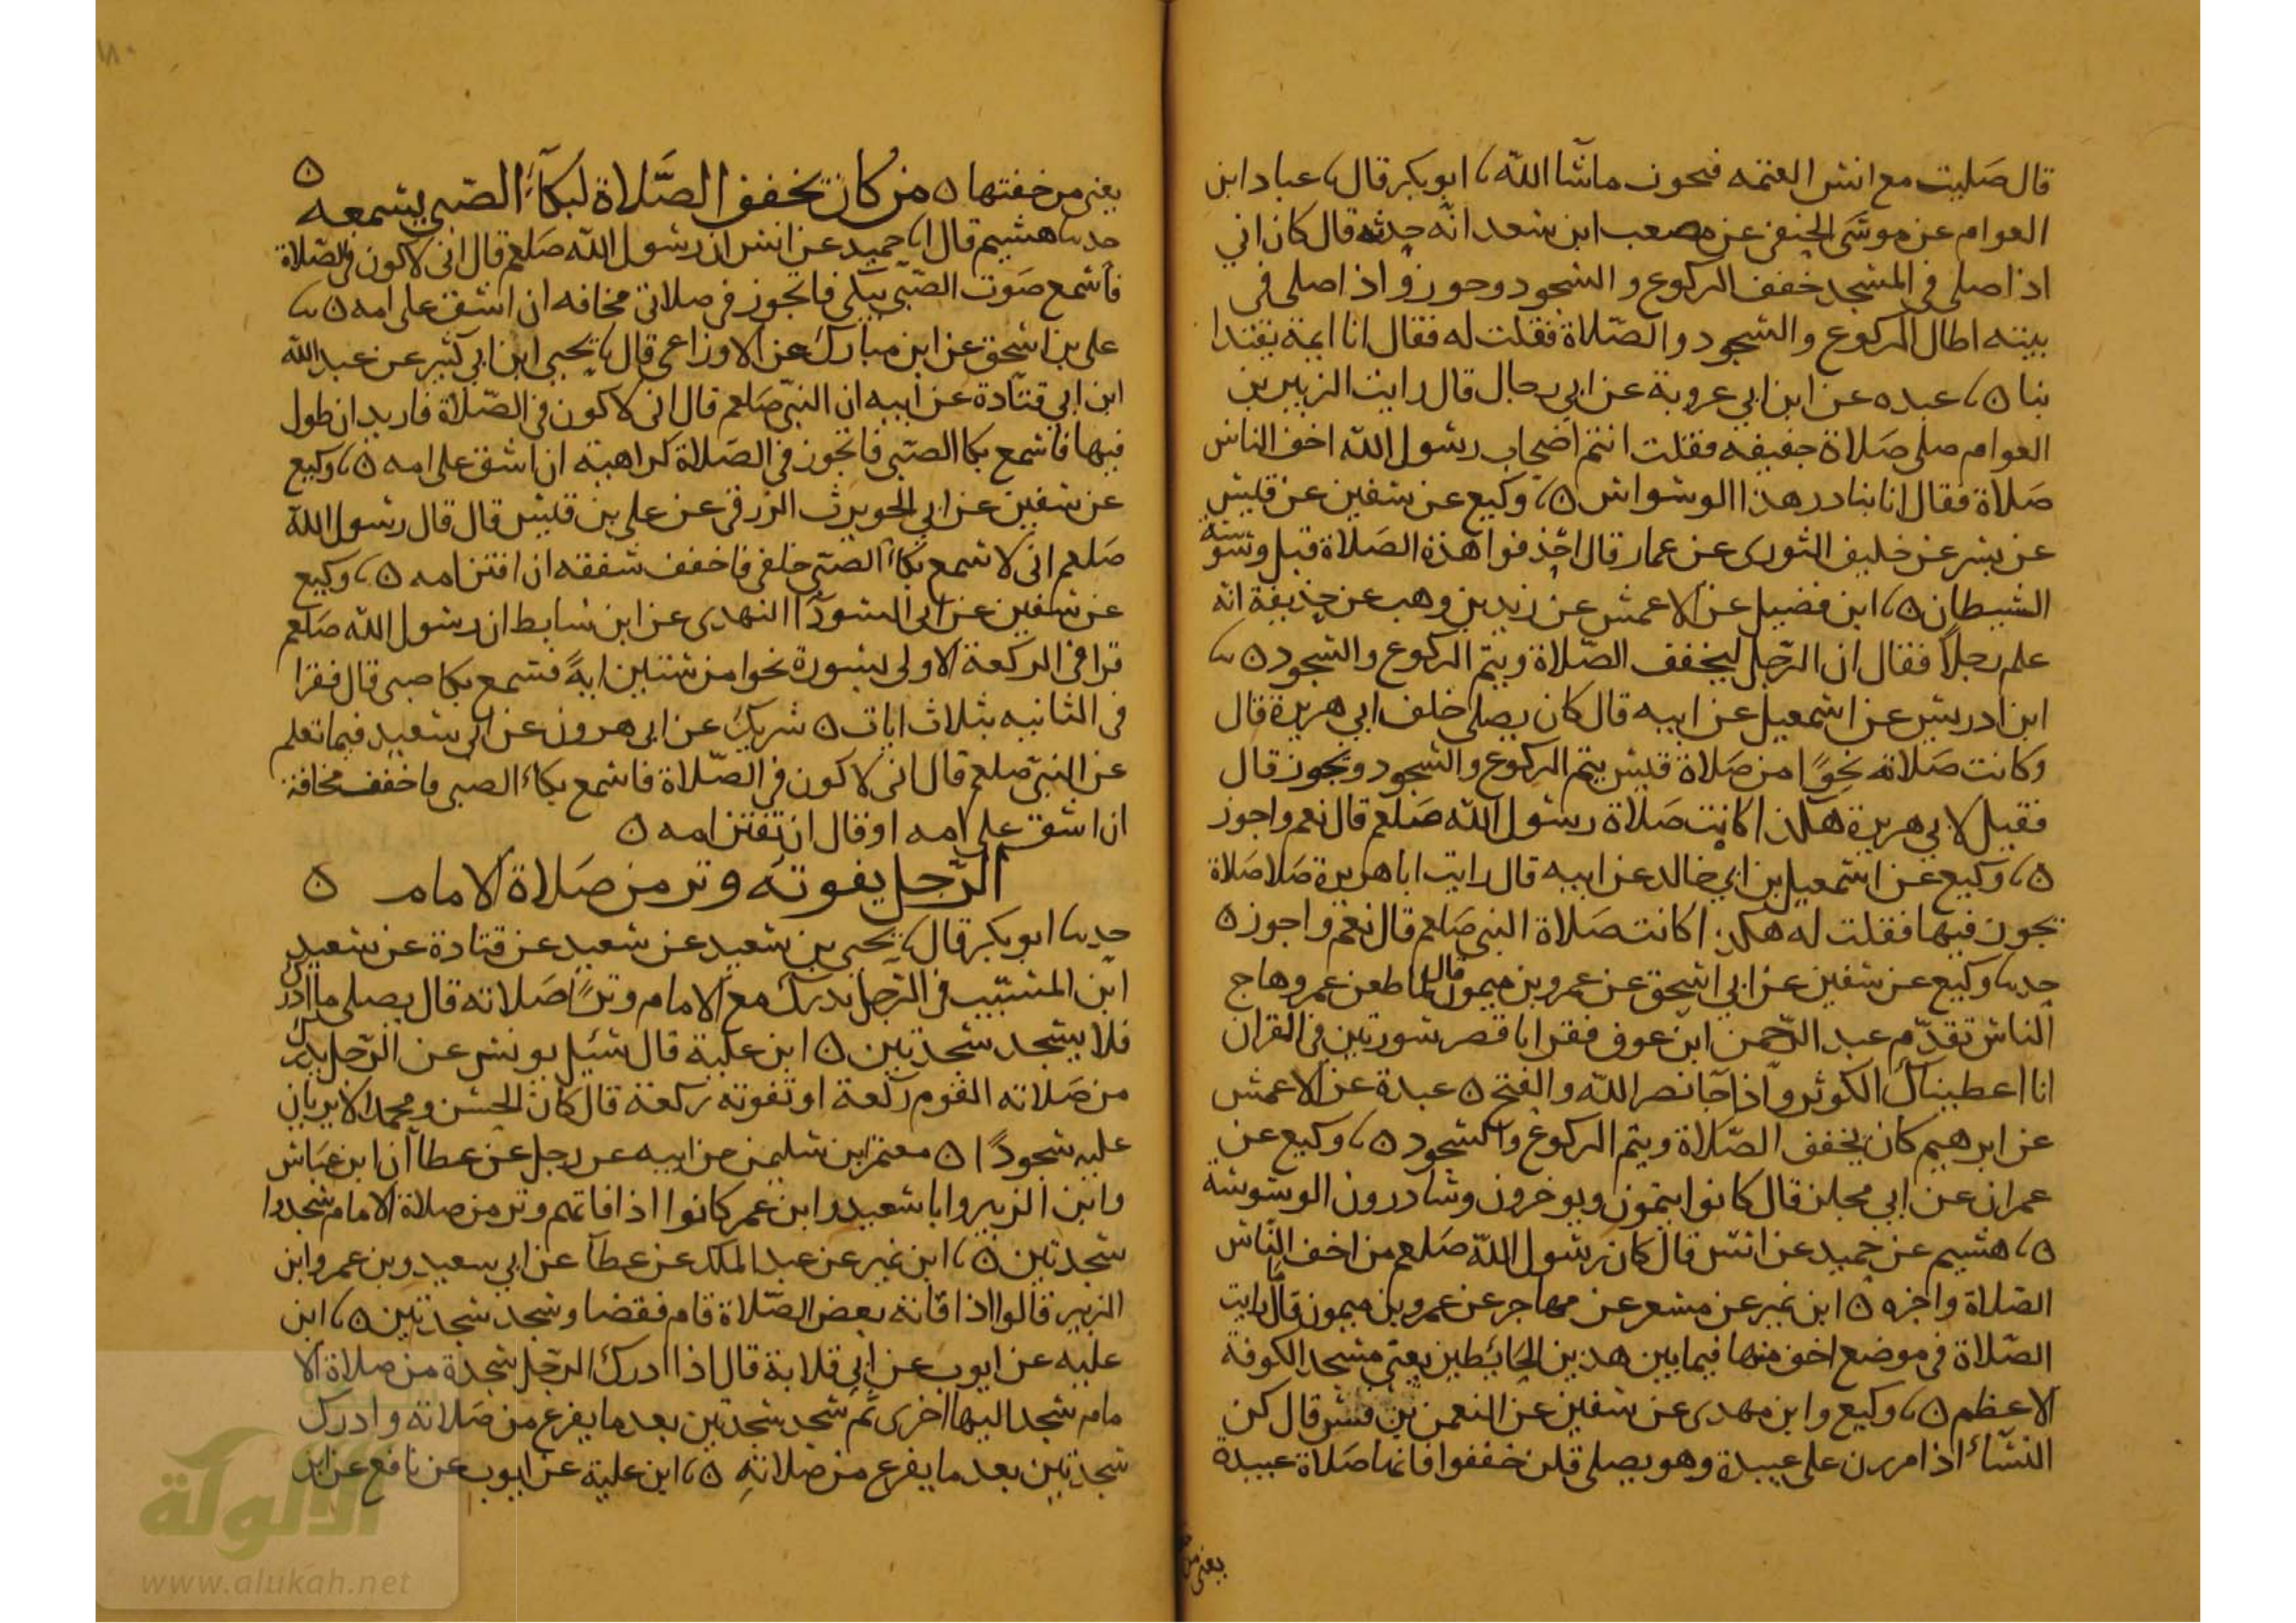 قال صليت مع انس العتمه فجوز ماشا الله نا ابو بكر قال نا عباد ابن
العوام عن موسى الحنفى عن مصعب ابن سعد انه حدثه قال كان ابي
اذا صلى في المسجد خفف الركوع و السجود وجوز واذا صلى في
بيته اطال الركوع والسجود والصلاة فقلت له فقال انا ايمة يقتدا
بنا ٥ نا عبده عن ابن ابي عروبة عن ابي رجال قال رايت الزبير بن
العوام صلى صلاة خفيفه فقلت انتم اصحاب رسول الله اخف الناس
صلاة فقال انا نبادر هذا الوسواس ٥ نا وكيع عن سفين عن قليس
عن بشر عن خليف الثورى عن عمار قال احذفوا هذه الصلاة قبل وسوسة
الشيطان ٥ نا ابن فضيل عن الاعمش عن زيد بن وهب عن حذيفة انه
علم رجلاً فقال ان الرجل ليخفف الصلاة ويتم الركوع والسجود ٥ نا
ابن ادريس عن اسمعيل عن ابيه قال كان يصلى خلف ابي هريرة قال
وكانت صلاته نحوًا من صلاة قيس يتم الركوع والسجود ونجوز قال
فقيل لابي هريرة هكذا كانت صلاة رسول الله صلعم قال نعم واجوز
٥ نا وكيع عن اسمعيل بن ابي خالد عن ابيه قال رايت ابا هريرة صلا صلاة
تجوز فيها فقلت له هكذا كانت صلاة النبي صلعم قال نعم واجوز ٥
حدنا وكيع عن سفين عن ابي اسحق عن عمرو بن ميمون قال لما طعن عمر وهاج
الناس تقدم عبد الرحمن ابن عوف فقرا باقصر سورتين في القران
انا اعطيناك الكوثر واذا جا نصر الله والفتح ٥ عبدة عن الاعمش
عن ابرهيم كان يخفف الصلاة ويتم الركوع والسجود ٥ نا وكيع عن
عمران عن ابي مجلز قال كانوا يتمون ويوخرون وسادرون الوسوسة
٥ نا هشيم عن حميد عن انس قال كان رسول الله صلعم من اخف الناس
الصلاة واجزه ٥ ابن نمير عن مسعر عن مهاجر عن عمرو بن ميمون قال رايت
الصلاة في موضع اخف منها فيما بين هذين الحائطين يعني مسجد الكوفة
الاعظم ٥ نا وكيع وابن مهدى عن سفين عن النعمن بن قيس قال كن
النساء اذا مررن على عبيدة وهو يصلى قلن خففوا فانها صلاة عبيدة
يعنى من
يعنى من خفتها ٥ من كان يخفف الصلاة لبكاء الصبي يسمعه ٥
حدنا هشيم قال انا حميد عن انس ان رسول الله صلعم قال انى لاكون في الصلاة
فاسمع صوت الصبي يبكى فاتجوز في صلاتي مخافه ان اشق على امه ٥ نا
على بن اسحق عن ابن مبارك عن الاوزاعى قال نا يحيى ابن ابي كثير عن عبد الله
ابن ابي قتادة عن ابيه ان النبي صلعم قال انى لاكون في الصلاة فاريد ان طول
فيها فاسمع بكا الصبي فاتجوز في الصلاة كراهية ان اشق على امه ٥ نا وكيع
عن سفين عن ابي الحويرث الزرقى عن على بن قليس قال قال رسول الله
صلعم انى لاسمع بكاء الصبي خلفى فاخفف شفقه ان افتن امه ٥ نا وكيع
عن سفين عن ابي السودا النهدى عن ابن سابط ان رسول الله صلعم
قرا في الركعة الاولى بسورة نحوا من ستين اية فسمع بكا صبى قال فقرا
في الثانيه بثلاث ايات ٥ شريك عن ابي هرون عن ابي سعيد فيما تعلم
عن النبي صلعم قال انى لاكون في الصلاة فاسمع بكاء الصبي فاخفف مخافة
ان اشق على امه او قال ان تفتتن امه ٥
الرجل يفوته وتر من صلاة الامام ٥
حدنا ابو بكر قال نا يحيى بن سعيد عن سعيد عن قتادة عن سعيد
ابن المسيب في الرجل يدرك مع الامام وترًا صلاته قال يصلى ما ادرك
فلا يسجد سجدتين ٥ ابن علية قال سئيل يونس عن الرجل يدرك
من صلاته القوم ركعة او تفوته ركعة قال كان الحسن ومحمد لا يريان
عليه سجودًا ٥ معتمر ابن سليمن عن ابيه عن رجل عن عطا ان ابن عباس
وابن الزبير وابا سعيد وابن عمر كانوا اذا فاتهم وتر من صلاة الامام سجدوا
سجدتين ٥ نا ابن نمير عن عبد الملك عن عطا عن ابي سعيد وبن عمر وابن
الزبير قالوا اذا فاته بعض الصلاة قام فقضا وسجد سجدتين ٥ نا ابن
عليه عن ايوب عن ابي قلابة قال اذا ادرك الرجل سجدة من صلاة الا
مام سجد اليها اخرى ثم سجد سجدتين بعد ما يفرغ من صلاته وادرك
سجدتين بعد ما يفرغ من صلاته ٥ نا ابن علية عن ايوب عن نافع عن ابن
الألوكة
www.alukah.net